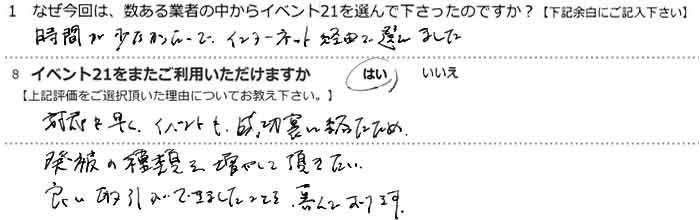 1 なぜ今回は、数ある業者の中からイベント21を選んで下さったのですか？【下記余白にご記入下さい】
時間が少なかったので、インターネット経由で選びました
8 イベント21をまたご利用いただけますか はい いいえ
【上記評価をご選択頂いた理由についてお教え下さい。】
対応も早く、イベントも、成功裏に終えたため
発被の種類を増やして頂きたい
良い取引ができましたことを、喜んでおります。